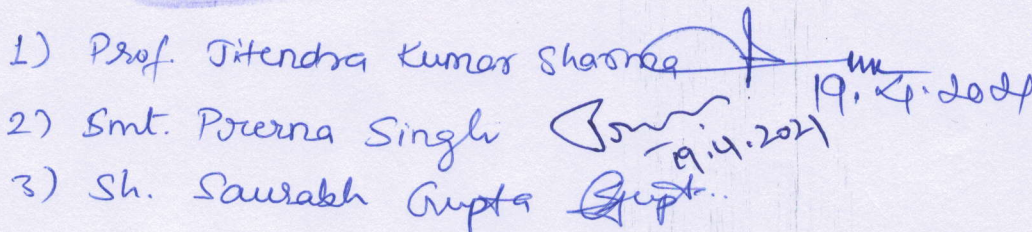 1) Prof. Jitendra Kumar Sharma 19.4.2021
2) Smt. Prerna Singh 19.4.2021
3) Sh. Saurabh Gupta Gupt..